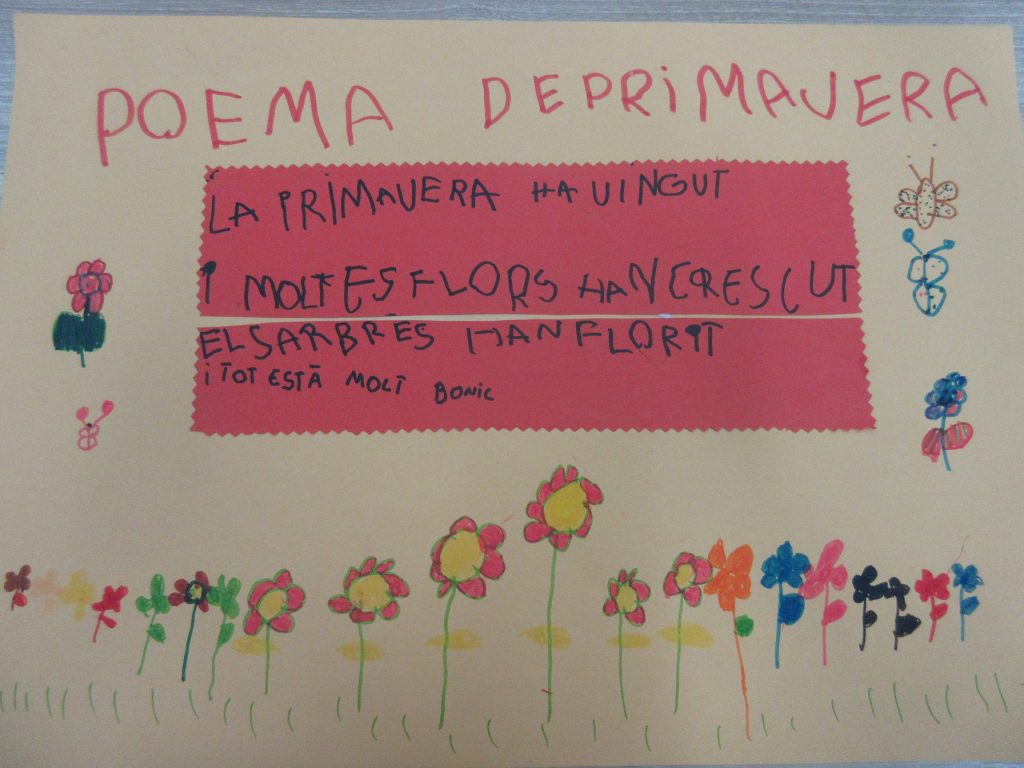 POEMA DEPRIMAVERA
LA PRIMAVERA HA VINGUT
I MOLTES FLORS HAN CRESCUT
ELSARBRES HAN FLORIT
i TOT ESTÀ MOLT BONIC